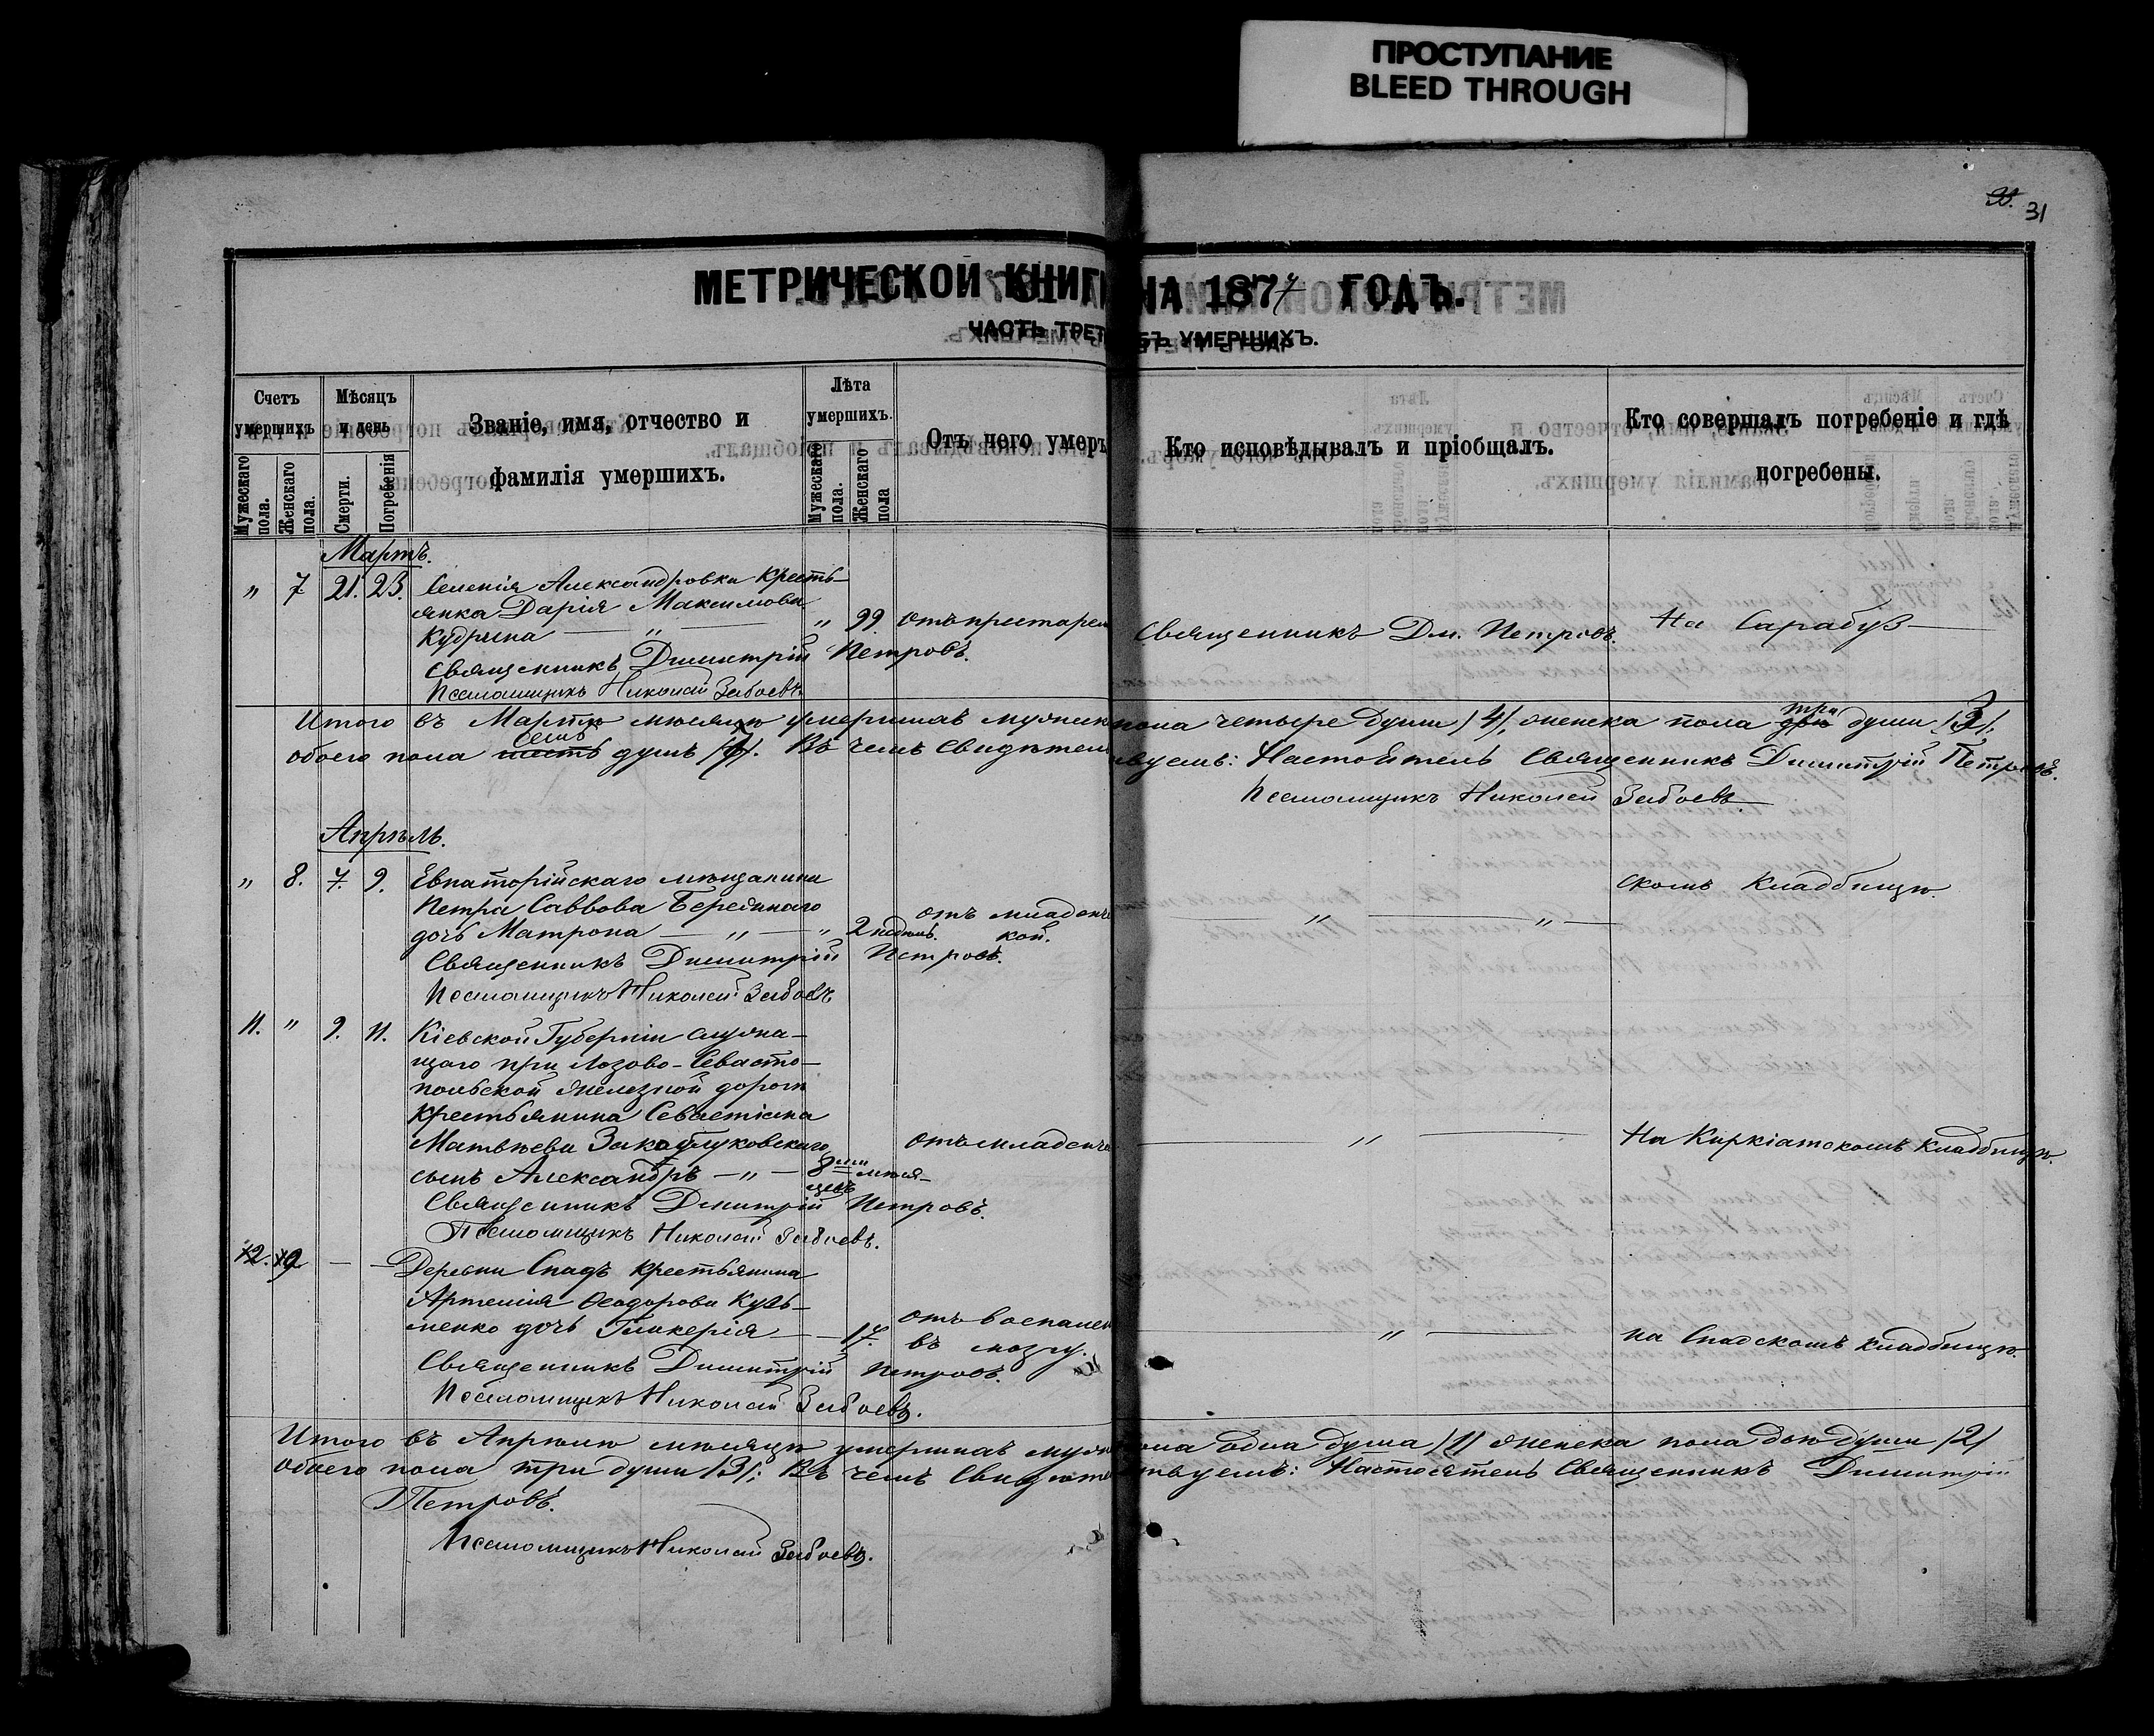 ПРОСТУПАНИЕ
BLEED THROUGH
31
МЕТРИЧЕСКОЙ КНИГИ НА 1877 ГОДЪ.
ЧАСТЬ ТРЕТ БЪ УМЕРШИХЪ.
Счетъ умершихъ
Мужескаго пола.
Женскаго пола.
Мѣсяцъ и день
Смерти.
Погребенія
Званіе, имя, отчество и
фамилія умершихъ.
Лѣта умершихъ.
Мужескаго пола.
Женскаго пола
Отъ чего умеръ
Кто исповѣдывалъ и пріобщалъ.
Кто совершалъ погребеніе и гдѣ
погребены.
Мартъ.
" 7 21. 23. Селенія Александровки Кресть-
янка Дарія Максимова
Кудрина — " — " 99 отъ престарел Священникъ Дм. Петровъ. На Сарабуз-
Священникъ Димитрій Петровъ.
Псаломщикъ Николай Забоевъ.
Итого въ Мартѣ мѣсяцѣ умершихъ мужск пола четыре души /4/, женска пола три двѣ души /3/,
обоего пола семь шесть душъ /7/. Въ чемъ Свидѣтел вуемъ: Настоятель Священникъ Димитрій Петровъ.
Псаломщикъ Николай Забоевъ
Апрѣль.
" 8. 7. 9. Евпаторійскаго мѣщанина
Петра Саввова
дочь Матрона — " — " 2 недѣль. отъ младенче кой. — " — " — скомъ Кладбищѣ.
Священникъ Димитрій Петровъ.
Псаломщикъ Николай Забоевъ
11. " 9. 11. Кіевской Губерніи служа-
щаго при Лозово-Севасто-
польской железной дороги
Крестьянина Севастіана
Матвѣева
сынъ Александръ — " — 8ми мѣся-
цевъ отъ младенче — " — На Киркіатскомъ Кладбищѣ.
Священникъ Димитрій Петровъ.
Псаломщикъ Николай Забоевъ.
12. 9 — — Деревни Спадъ крестьянина
Артемія Ѳеодорова Кузь-
менко дочь Гликерія — — 17. отъ воспален
въ мозгу. — " — на Спадскомъ кладбищѣ.
Священникъ Димитрій Петровъ.
Псаломщикъ Николай Забоевъ.
Итого въ Апрѣлѣ мѣсяцѣ умершихъ мужс пола одна душа /1/ женска пола двѣ души /2/
обоего пола три души /3/: Въ чемъ Свидѣте ствуемъ: Настоятель Священникъ Димитрій
Петровъ.
Псаломщикъ Николай Забоевъ.